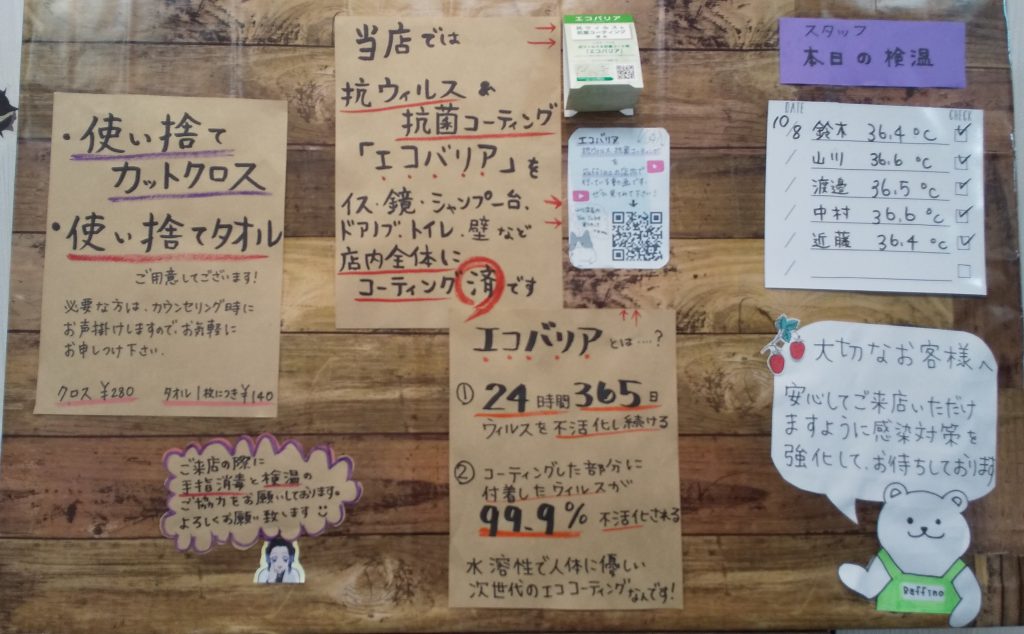 ・使い捨て
カットクロス
・使い捨てタオル
ご用意してございます!
必要な方は、カウンセリング時に
お声掛けしますので、お気軽に
お申しつけ下さい.
クロス ¥280 タオル1枚につき¥140
ご来店の際に
手指消毒と検温の
ご協力をお願いしております。
よろしくお願い致します
当店では
抗ウィルス&
抗菌コーティング
「エコバリア」を
イス・鏡・シャンプー台、
ドアノブ、トイレ、壁など
店内全体に
コーティング済です
エコバリア
抗ウィルス&
抗菌コーティング
「エコバリア」
エコバリア
抗ウィルス抗菌コーティング
を
Raffinoの店内で
行っている動画です。
ぜひ見てみて下さい!
エコバリアとは....?
① 24時間365日
ウィルスを不活化し続ける
② コーティングした部分に
付着したウィルスが
99.9% 不活化される
水溶性で人体に優しい
次世代のエココーティングなんです!
スタッフ
本日の検温
DATE CHECK
10/8 鈴木 36.4℃
/ 山川 36.6℃
/ 渡邉 36.5℃
/ 中村 36.6℃
/ 近藤 36.4℃
/
大切なお客様へ
安心してご来店いただけ
ますように感染対策を
強化して、お待ちしております
Raffino